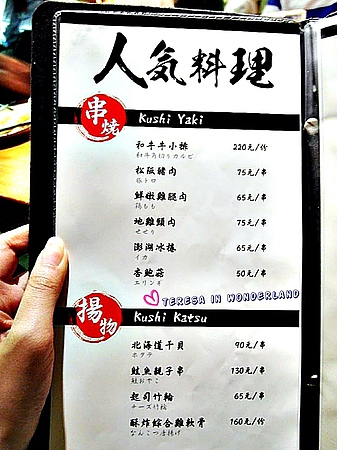 人気料理
串燒 Kushi Yaki
和牛牛小排 220元/份
和牛角切りカルビ
松阪豬肉 75元/串
豚トロ
鮮嫩雞腿肉 65元/串
鶏もも
地雞頸肉 75元/串
せせり
澎湖冰捲 65元/串
イカ
杏鮑菇 50元/串
エリンギ
TERESA IN WONDERLAND
揚物 Kushi Katsu
北海道干貝 90元/串
ホタテ
鮭魚親子串 130元/串
鮭おやこ
起司竹輪 65元/串
チーズ竹輪
酥炸綜合雞軟骨 160元/份
なんこつ唐揚げ